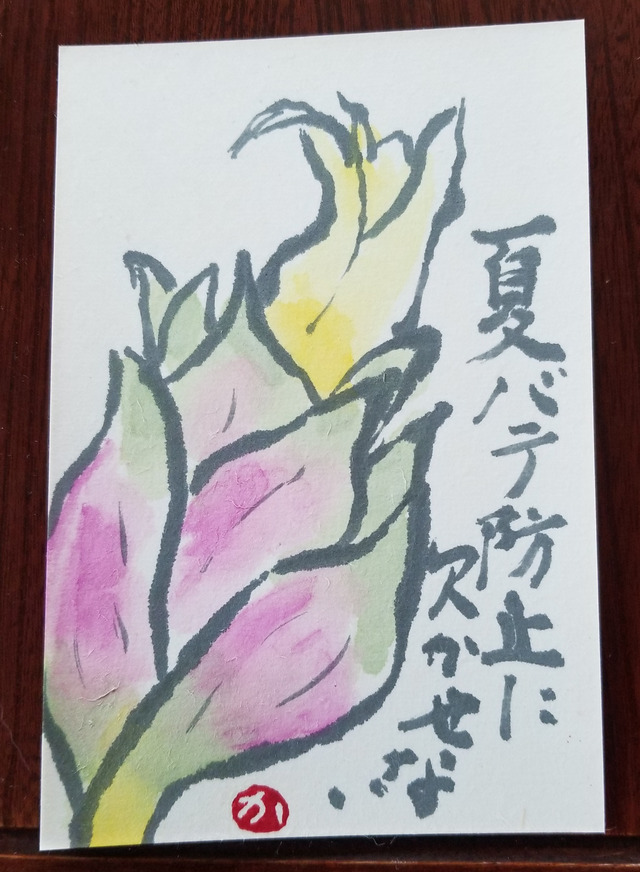 夏バテ防止に
欠かせない
か